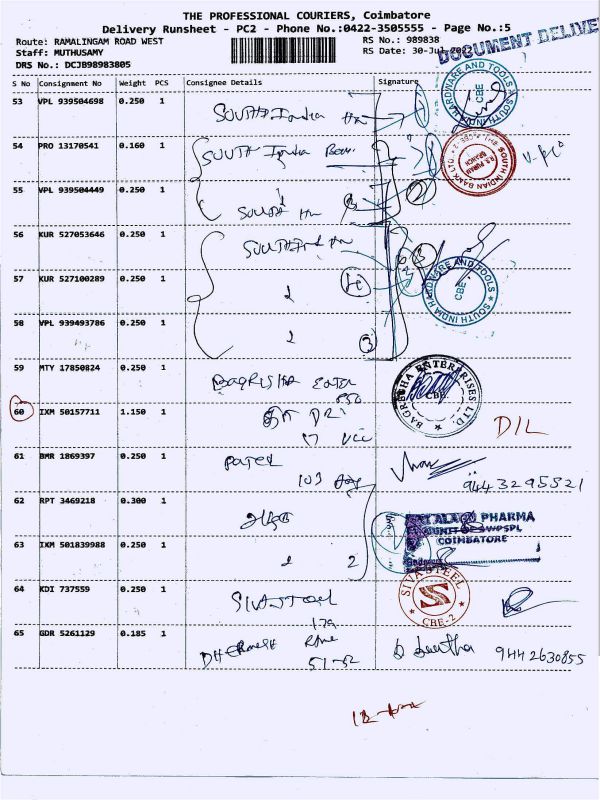 THE PROFESSIONAL COURIERS, Coimbatore
Delivery Runsheet - PC2 - Phone No.:0422-3505555 - Page No.:5
Route: RAMALINGAM ROAD WEST RS No.: 989838
Staff: MUTHUSAMY RS Date: 30-Jul-2022
DOCUMENT DELIVE
DRS No.: DCJB98983805
S No Consignment No Weight PCS Consignee Details Signature
53 VPL 939504698 0.250 1 South India HW
SOUTH INDIA HARDWARE AND TOOLS CBE
54 PRO 13170541 0.160 1 SOUTH India
SOUTH INDIAN BANK LTD. R.S. PURAM BRANCH
55 VPL 939504449 0.250 1
South HW 2
56 KUR 527053646 0.250 1 South Ind HW
57 KUR 527100289 0.250 1
SOUTH INDIA HARDWARE AND TOOLS CBE
58 VPL 939493786 0.250 1 3
59 MTY 17850824 0.250 1 BAGRISHA
BAGRECHA ENTERPRISES LTD. CBE.
60 IXM 50157711 1.150 1 D/L
61 BMR 1869397 0.250 1 PATEL
103 9443295521
62 RPT 3469218 0.300 1
PHARMA
COIMBATORE
63 IXM 501839988 0.250 1 2
64 KDI 737559 0.250 1 SIVASTEEL
179
SIVA STEEL S CBE-2
65 GDR 5261129 0.185 1 DHARMESH
51-52 9442630855